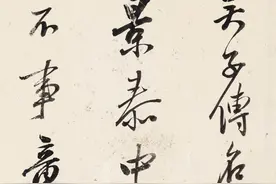 天子傳名
景泰中
不事齋